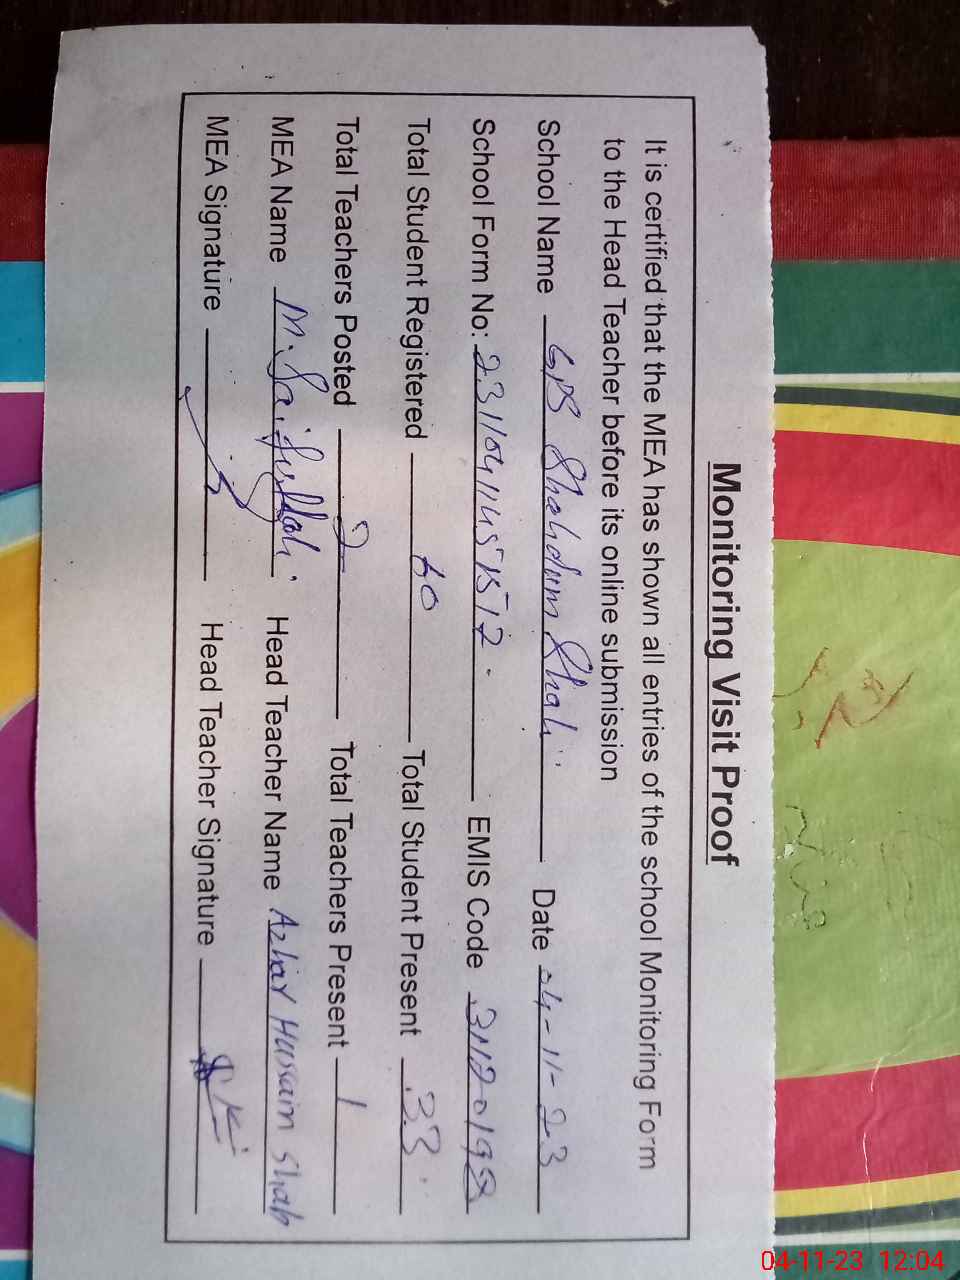 Monitoring Visit Proof
It is certified that the MEA has shown all entries of the school Monitoring Form
to the Head Teacher before its online submission
School Name GPS Shahdum Shah Date 04-11-23
School Form No: EMIS Code
Total Student Registered 60 Total Student Present 33
Total Teachers Posted 2 Total Teachers Present 1
MEA Name M. Saifullah Head Teacher Name Azhar Hussain Shah
MEA Signature Head Teacher Signature
04-11-23 12:04